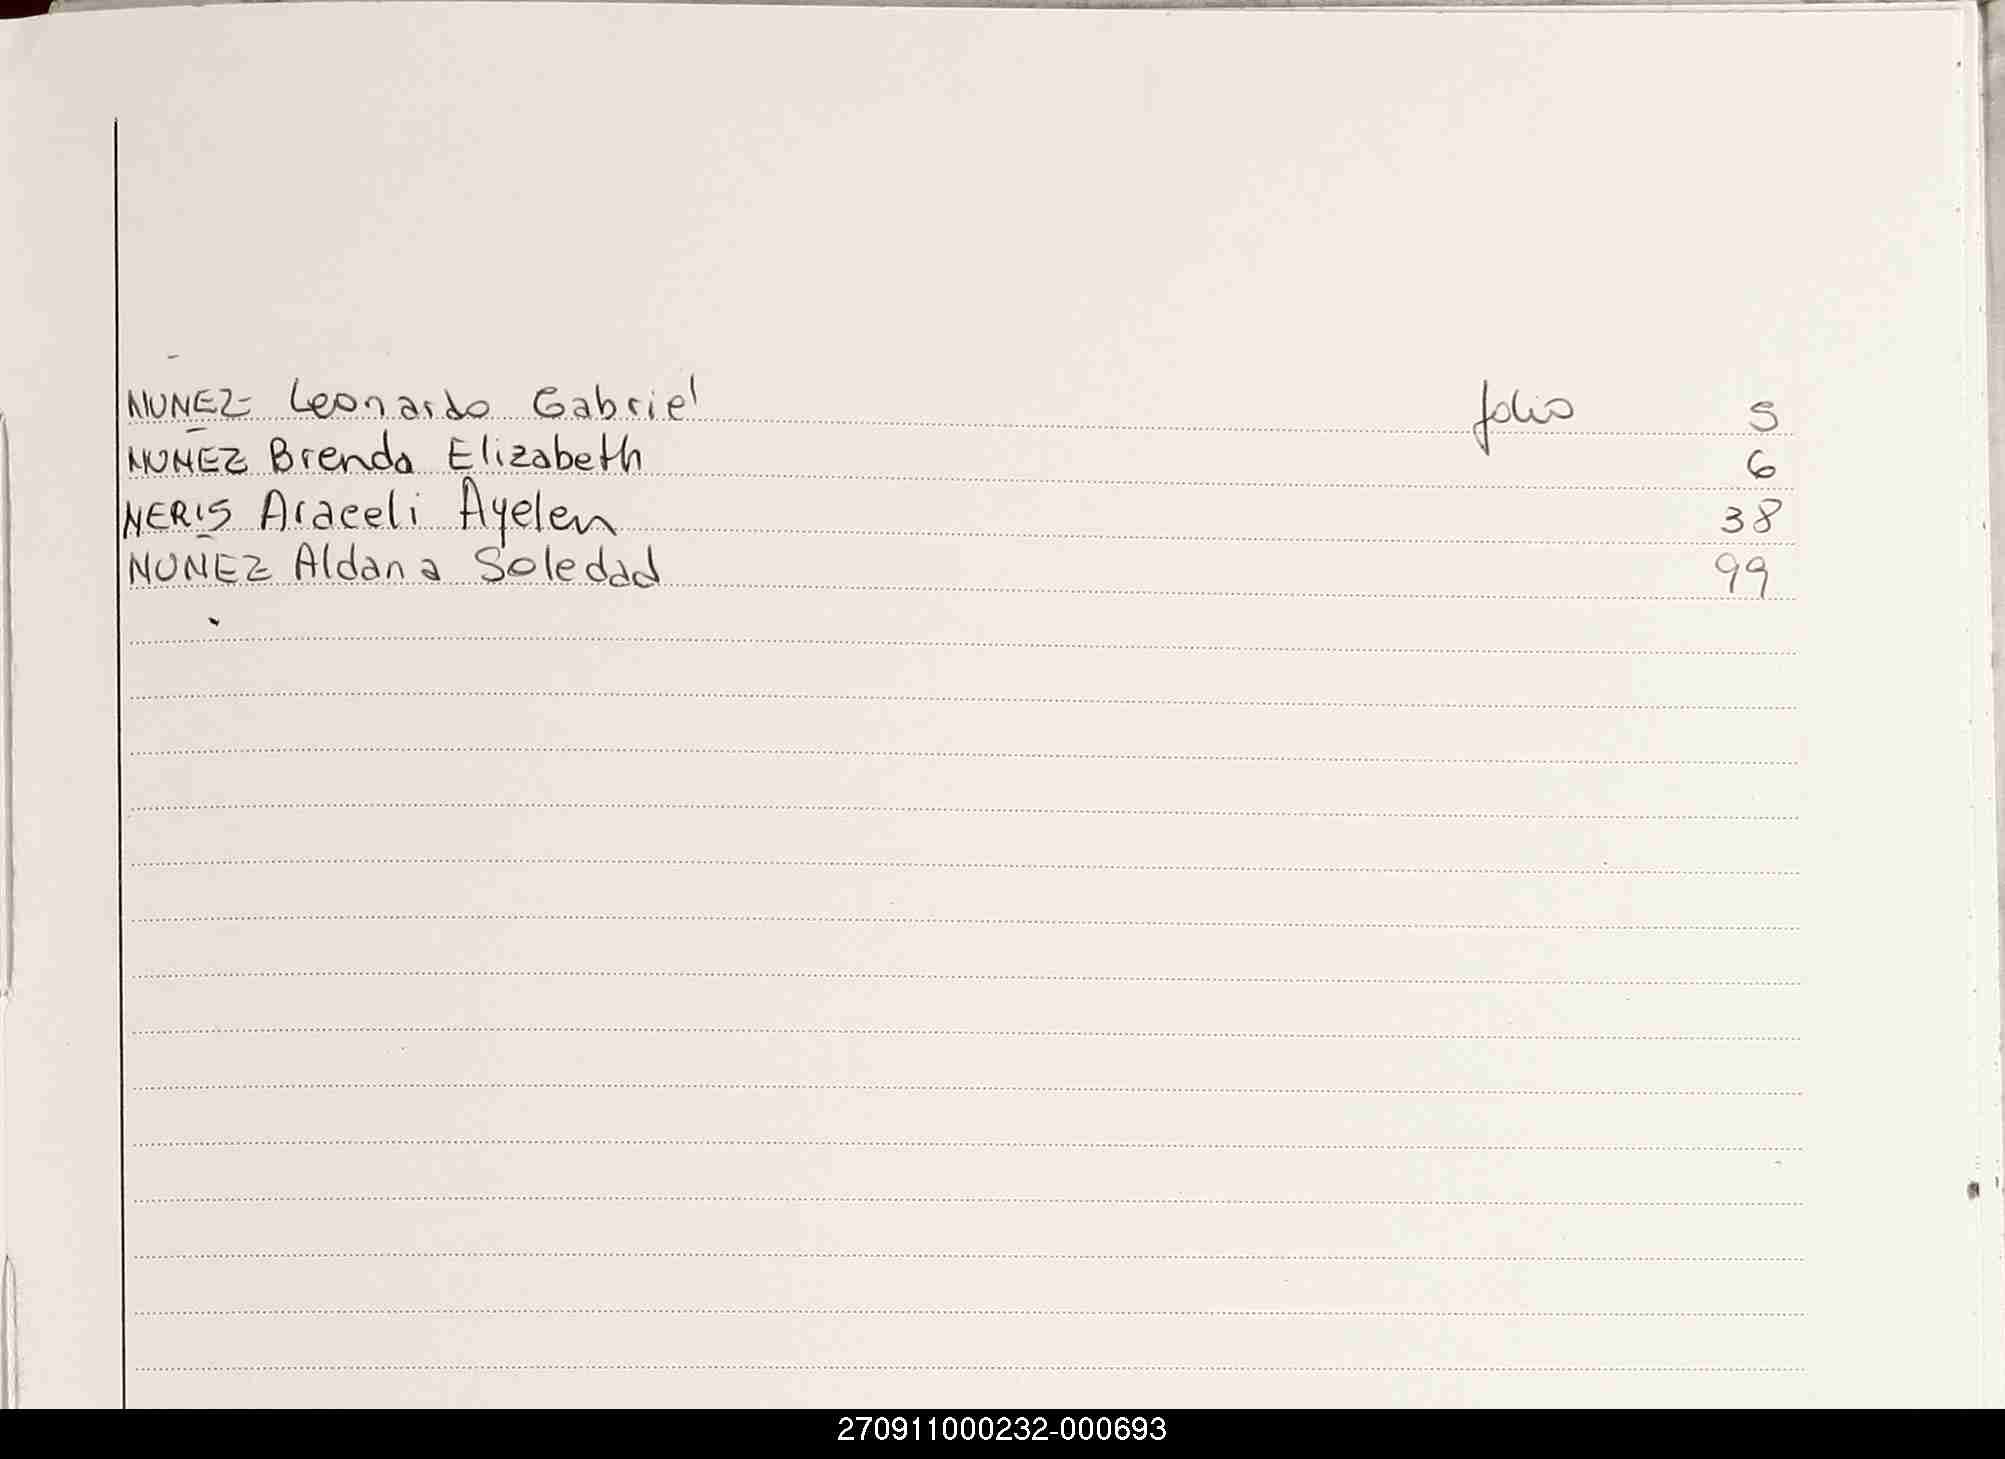 NUÑEZ Leonardo Gabriel folio 5
NUÑEZ Brenda Elizabeth 6
NERIS Araceli Ayelen 38
NUÑEZ Aldana Soledad 99
270911000232-000693